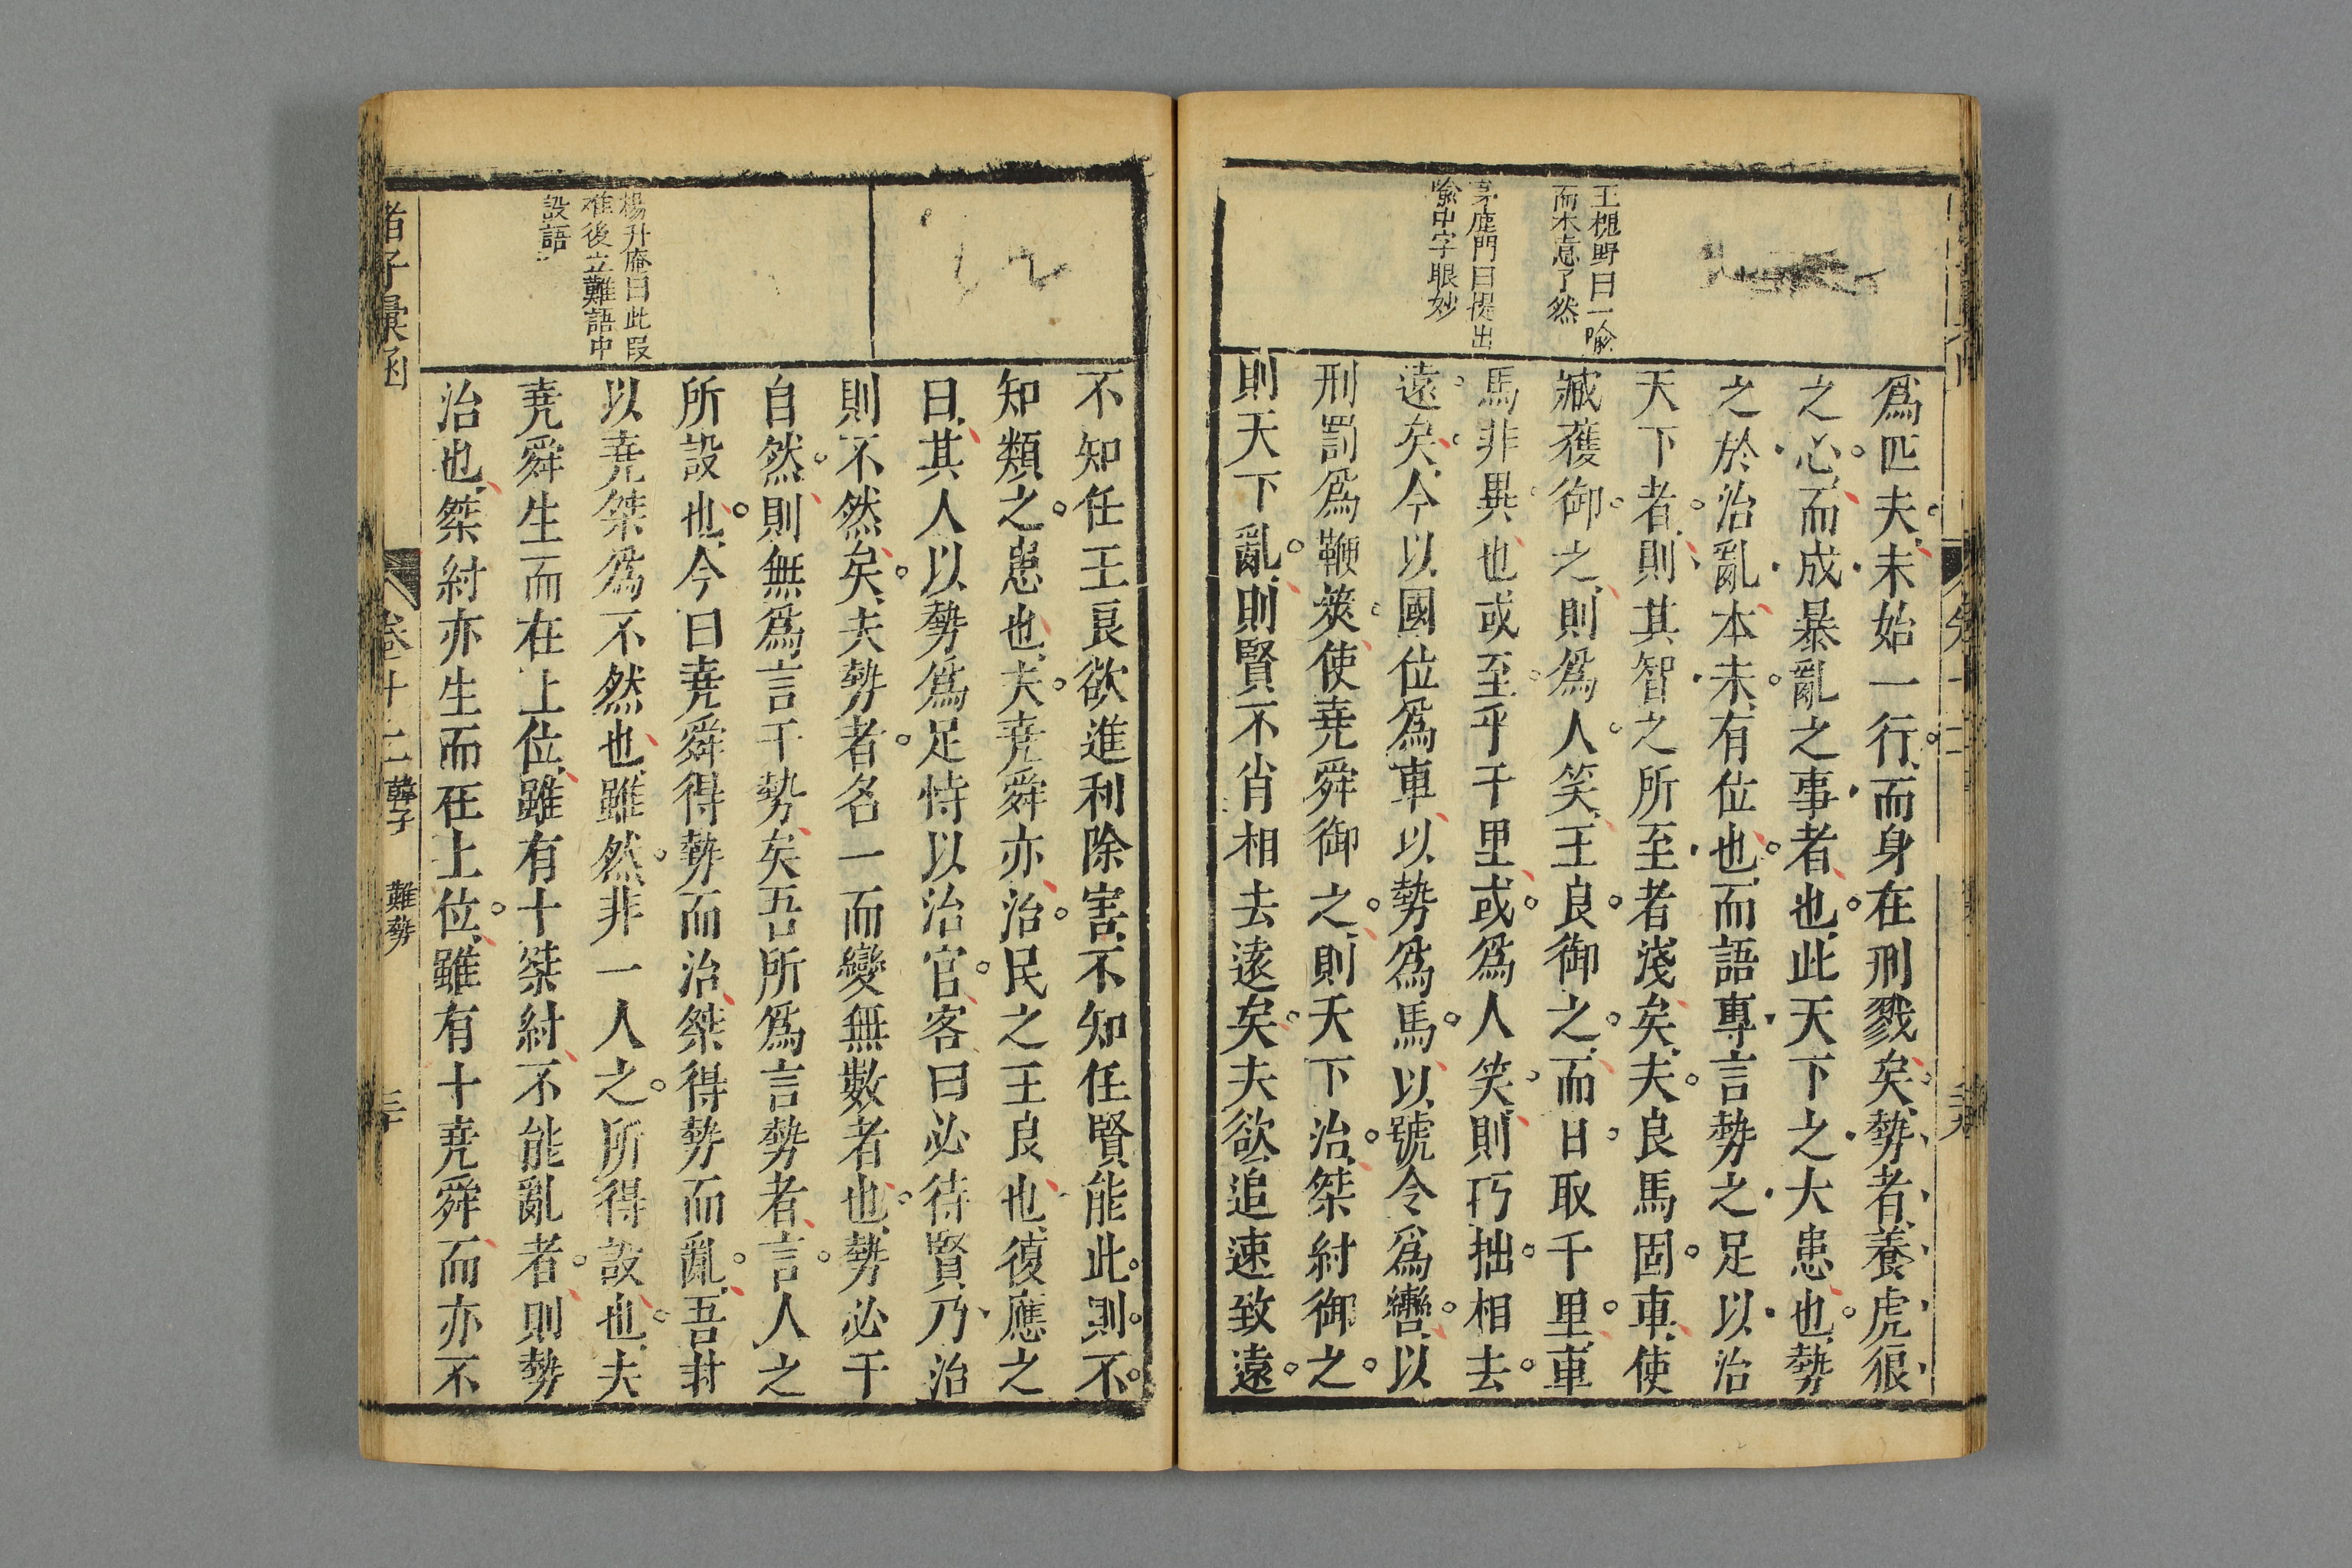 王槐野曰一喻
而本意了然
茅鹿門曰提出
喻中字眼妙
爲匹夫未始一行而身在刑戮矣勢者養虎狼
之心而成暴亂之事者也此天下之大患也勢
之於治亂本未有位也而語專言勢之足以治
天下者則其智之所至者淺矣夫良馬固車使
臧獲御之則爲人笑王良御之而日取千里車
馬非異也或至乎千里或爲人笑則巧拙相去
遠矣今以國位爲車以勢爲馬以號令爲轡以
刑罰爲鞭筴使堯舜御之則天下治桀紂御之
則天下亂則賢不肖相去遠矣夫欲追速致遠
楊升庵曰此段
難後立難語中
設語
不知任王良欲進利除害不知任賢能此則不
知類之患也夫堯舜亦治民之王良也復應之
曰其人以勢爲足恃以治官客曰必待賢乃治
則不然矣夫勢者名一而變無數者也勢必于
自然則無爲言于勢矣吾所爲言勢者言人之
所設也今曰堯舜得勢而治桀得勢而亂吾非
以堯桀爲不然也雖然非一人之所得設也夫
堯舜生而在上位雖有十桀紂不能亂者則勢
治也桀紂亦生而在上位雖有十堯舜而亦不
諸子彙函
卷十二 韓子 難勢 三十